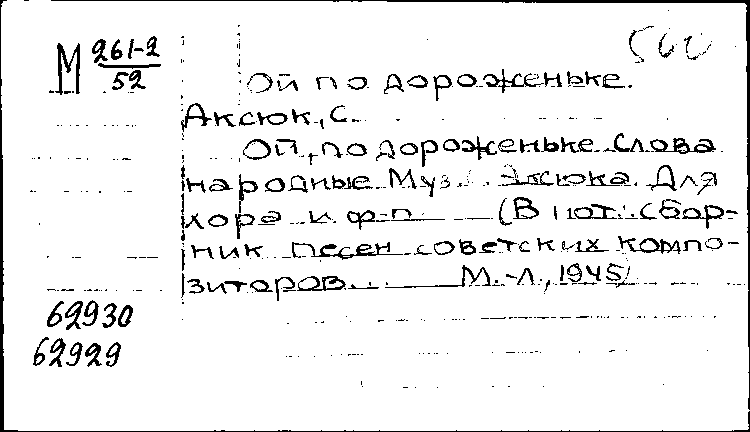 М 261-2
52
Ой по дороженьке.
Аксюк, С.
Ой, по дороженьке. Слова
народные Муз. С. Аксюка. Для
хора и ф-п (В нот. сбор-
ник песен советских компо-
зиторов... М.-Л., 1945)
62930
62929